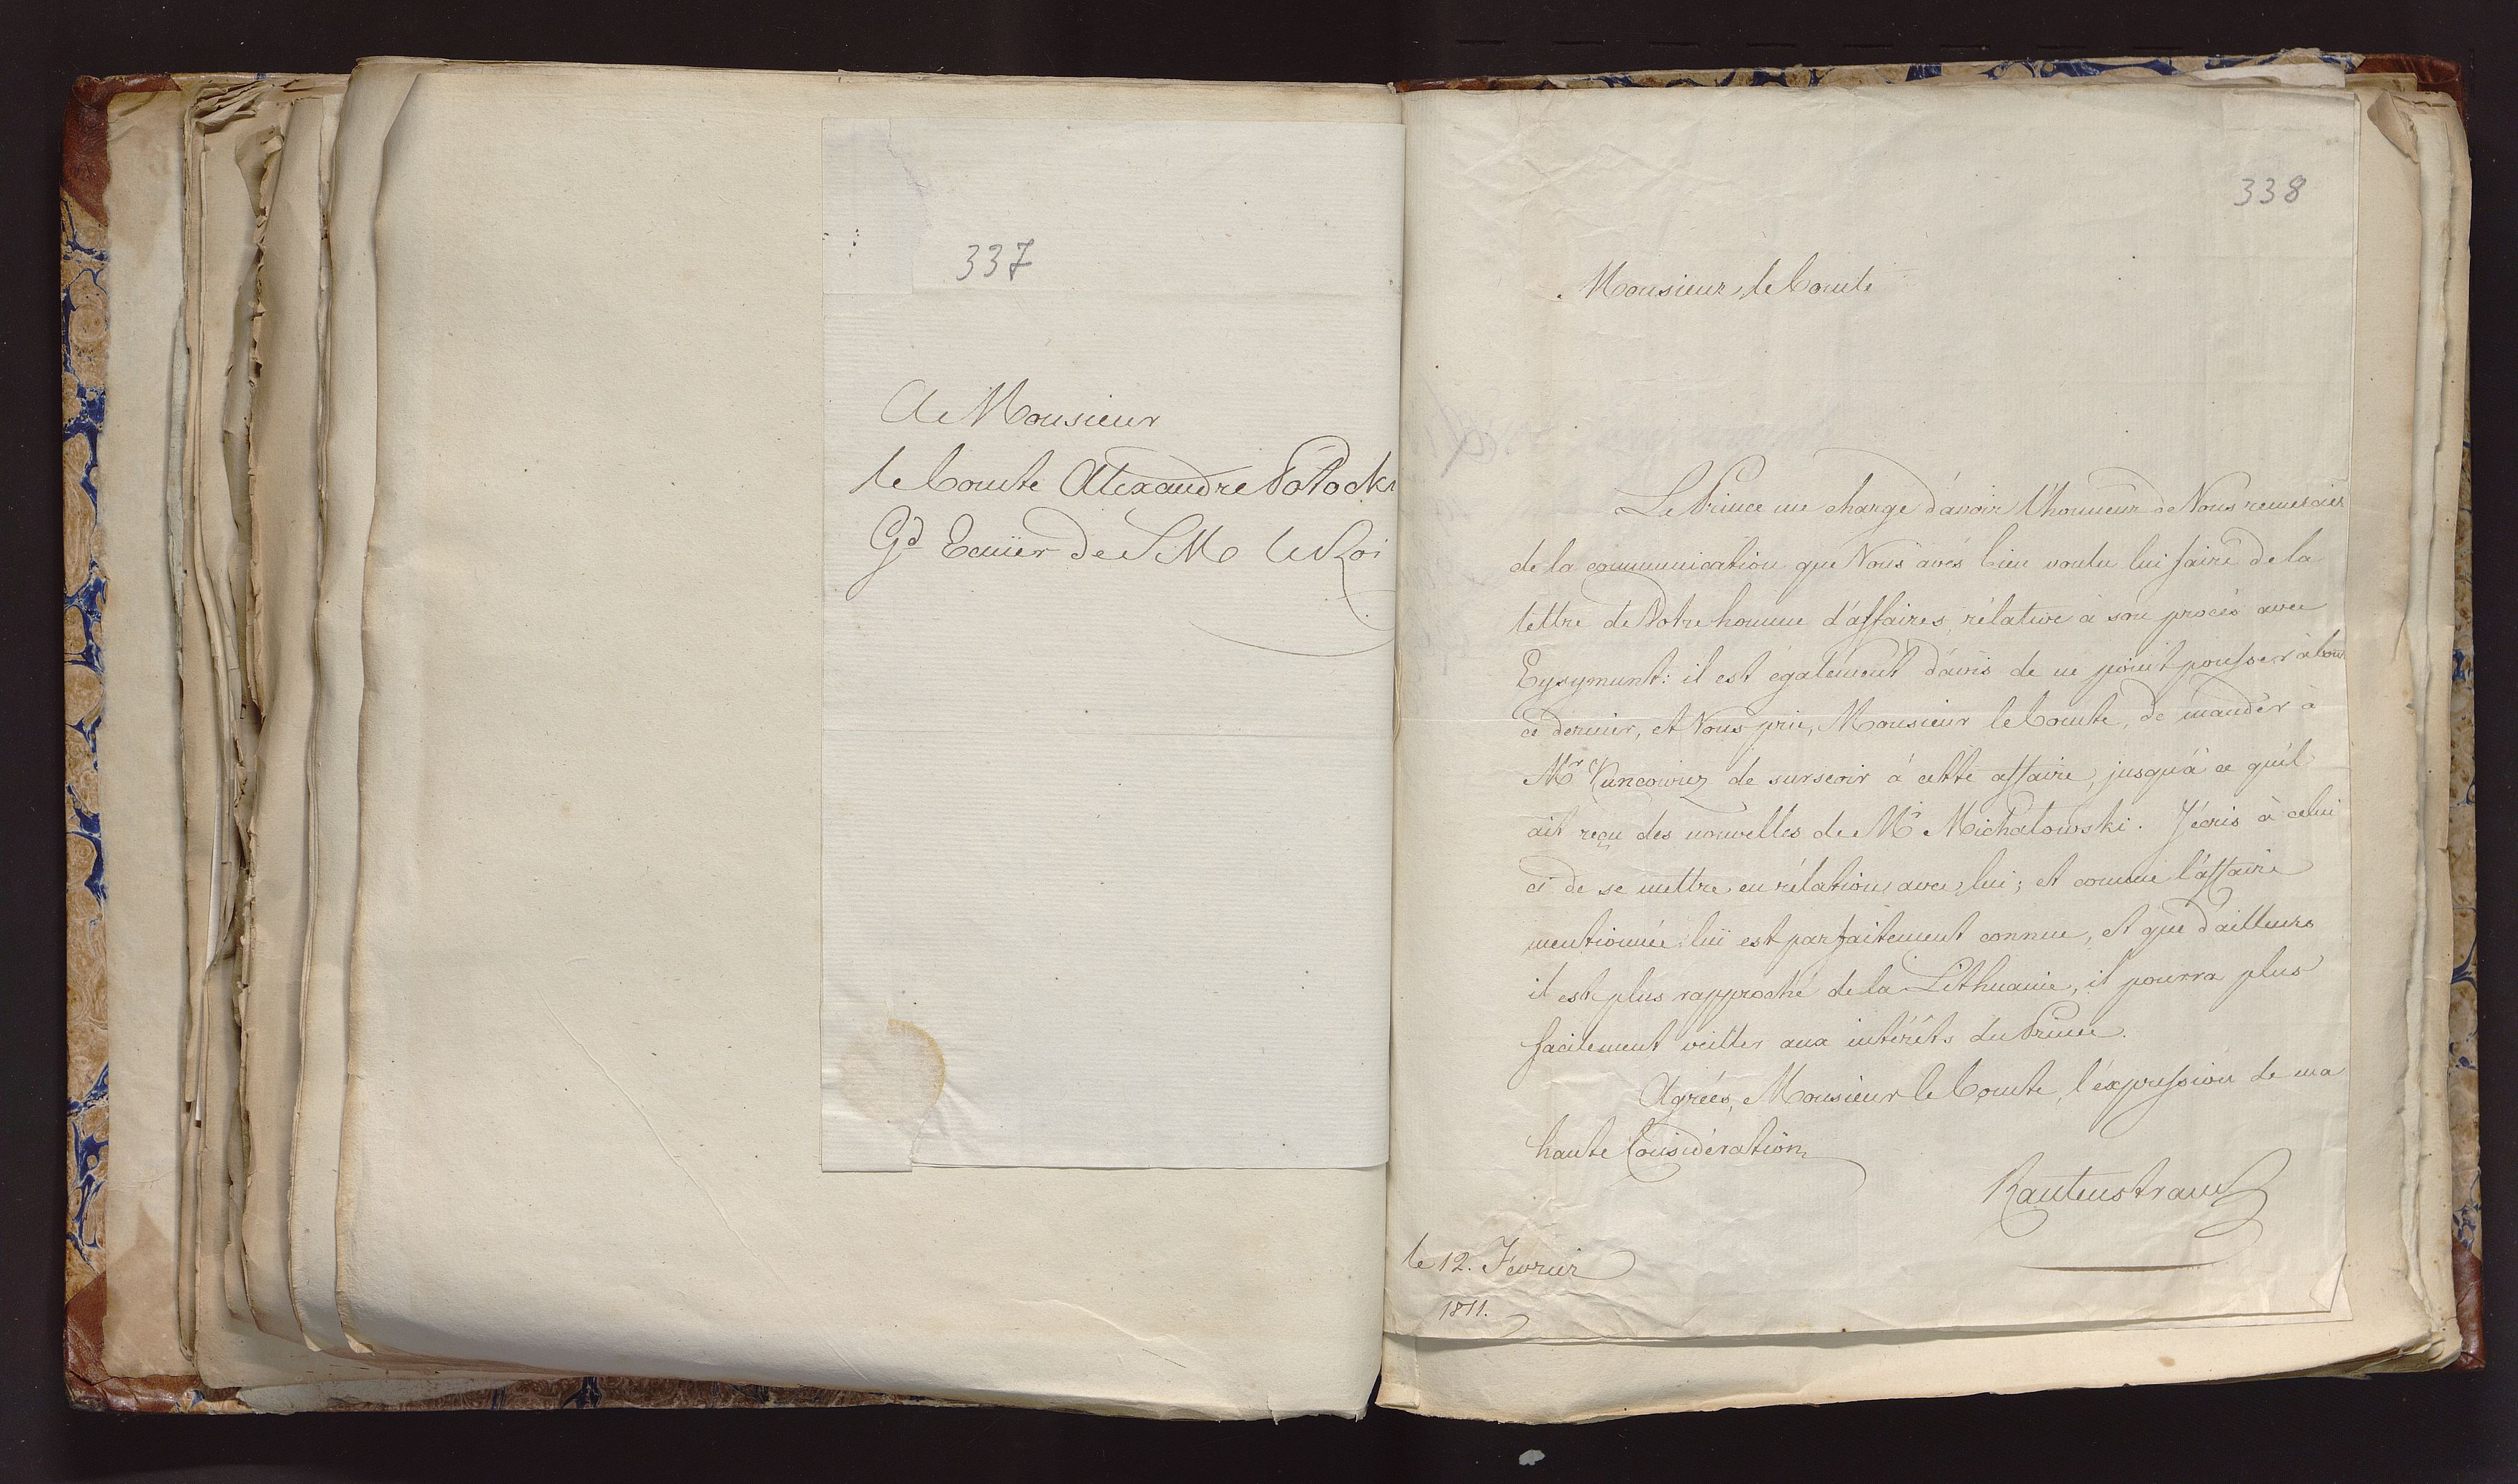 337
A Monsieur
le Comte Alexandre Potocki
Gd Ecuïer de S M le Roi
338
Monsieur le Comte
Le Prince me charge d'avoir l'honneur de Vous remercier
de la communication que Vous avés bien voulu lui faire de la
lettre de Votre homme d'affaires, rélative à son procès avec
Eysymunt: il est également d'avis de ne point pousser à bout
ce dernier, et Vous prie, Monsieur le Comte, de mander à
Mr de surseoir à cette affaire, jusqu'à ce qu'il
ait reçu des nouvelles de Mr Michalowski. J'écris à celui
ci de se mettre en rélations avec lui; et comme l'affaire
mentionnée lui est parfaitement connue, et que d'ailleurs
il est plus rapproché de la Lithuanie, il pourra plus
facilement veiller aux intérêts du Prince.
Agréés, Monsieur le Comte, l'éxpression de ma
haute Considération
Rautenstrauch
le 12. Fevrier
1811.